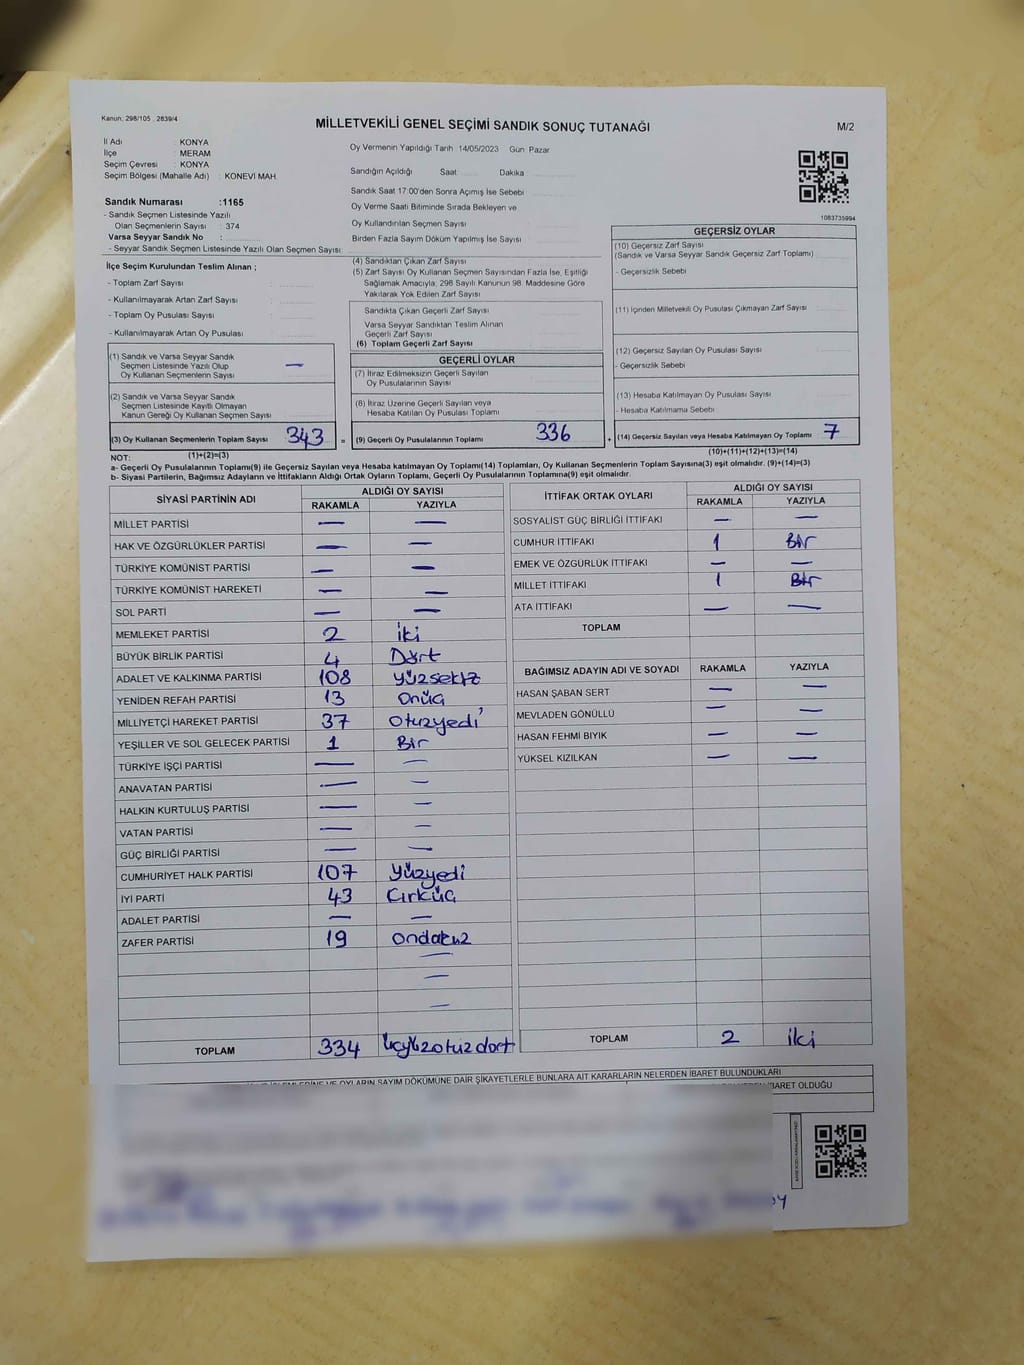 Kanun; 298/105 , 2839/4
MİLLETVEKİLİ GENEL SEÇİMİ SANDIK SONUÇ TUTANAĞI
M/2
İl Adı : KONYA
İlçe : MERAM
Seçim Çevresi : KONYA
Seçim Bölgesi (Mahalle Adı) : KONEVİ MAH.
Oy Vermenin Yapıldığı Tarih : 14/05/2023 Gün: Pazar
Sandığın Açıldığı Saat Dakika
Sandık Saat 17:00'den Sonra Açımış İse Sebebi
Oy Verme Saati Bitiminde Sırada Bekleyen ve
Oy Kullandırılan Seçmen Sayısı
Birden Fazla Sayım Döküm Yapılmış İse Sayısı
1083735994
Sandık Numarası :1165
- Sandık Seçmen Listesinde Yazılı
Olan Seçmenlerin Sayısı : 374
Varsa Seyyar Sandık No :
- Seyyar Sandık Seçmen Listesinde Yazılı Olan Seçmen Sayısı:
İlçe Seçim Kurulundan Teslim Alınan ;
- Toplam Zarf Sayısı :
- Kullanılmayarak Artan Zarf Sayısı :
- Toplam Oy Pusulası Sayısı :
- Kullanılmayarak Artan Oy Pusulası :
(1) Sandık ve Varsa Seyyar Sandık
Seçmen Listesinde Yazılı Olup
Oy Kullanan Seçmenlerin Sayısı —
(2) Sandık ve Varsa Seyyar Sandık
Seçmen Listesinde Kayıtlı Olmayan
Kanun Gereği Oy Kullanan Seçmen Sayısı
(3) Oy Kullanan Seçmenlerin Toplam Sayısı 343 =
(1)+(2)=(3)
(4) Sandıktan Çıkan Zarf Sayısı
(5) Zarf Sayısı Oy Kullanan Seçmen Sayısından Fazla İse, Eşitliği
Sağlamak Amacıyla; 298 Sayılı Kanunun 98. Maddesine Göre
Yakılarak Yok Edilen Zarf Sayısı
Sandıkta Çıkan Geçerli Zarf Sayısı
Varsa Seyyar Sandıktan Teslim Alınan
Geçerli Zarf Sayısı
(6) Toplam Geçerli Zarf Sayısı
GEÇERLİ OYLAR
(7) İtiraz Edilmeksizin Geçerli Sayılan
Oy Pusulalarının Sayısı
(8) İtiraz Üzerine Geçerli Sayılan veya
Hesaba Katılan Oy Pusulası Toplamı
(9) Geçerli Oy Pusulalarının Toplamı 336 +
GEÇERSİZ OYLAR
(10) Geçersiz Zarf Sayısı
(Sandık ve Varsa Seyyar Sandık Geçersiz Zarf Toplamı)
- Geçersizlik Sebebi
(11) İçinden Milletvekili Oy Pusulası Çıkmayan Zarf Sayısı
(12) Geçersiz Sayılan Oy Pusulası Sayısı
- Geçersizlik Sebebi
(13) Hesaba Katılmayan Oy Pusulası Sayısı
- Hesaba Katılmama Sebebi
(14) Geçersiz Sayılan veya Hesaba Katılmayan Oy Toplamı 7
(10)+(11)+(12)+(13)=(14)
NOT:
a- Geçerli Oy Pusulalarının Toplamı(9) ile Geçersiz Sayılan veya Hesaba katılmayan Oy Toplamı(14) Toplamları, Oy Kullanan Seçmenlerin Toplam Sayısına(3) eşit olmalıdır. (9)+(14)=(3)
b- Siyasi Partilerin, Bağımsız Adayların ve İttifakların Aldığı Ortak Oyların Toplamı, Geçerli Oy Pusulalarının Toplamına(9) eşit olmalıdır.
SİYASİ PARTİNİN ADI ALDIĞI OY SAYISI
RAKAMLA YAZIYLA
MİLLET PARTİSİ — —
HAK VE ÖZGÜRLÜKLER PARTİSİ — —
TÜRKİYE KOMÜNİST PARTİSİ — —
TÜRKİYE KOMÜNİST HAREKETİ — —
SOL PARTİ — —
MEMLEKET PARTİSİ 2 iki
BÜYÜK BİRLİK PARTİSİ 4 Dört
ADALET VE KALKINMA PARTİSİ 108 yüzsekiz
YENİDEN REFAH PARTİSİ 13 onüç
MİLLİYETÇİ HAREKET PARTİSİ 37 otuzyedi
YEŞİLLER VE SOL GELECEK PARTİSİ 1 Bir
TÜRKİYE İŞÇİ PARTİSİ — —
ANAVATAN PARTİSİ — —
HALKIN KURTULUŞ PARTİSİ — —
VATAN PARTİSİ — —
GÜÇ BİRLİĞİ PARTİSİ — —
CUMHURİYET HALK PARTİSİ 107 yüzyedi
İYİ PARTİ 43 Cırküç
ADALET PARTİSİ — —
ZAFER PARTİSİ 19 ondokuz
—
—
—
TOPLAM 334 üçyüzotuzdört
İTTİFAK ORTAK OYLARI ALDIĞI OY SAYISI
RAKAMLA YAZIYLA
SOSYALİST GÜÇ BİRLİĞİ İTTİFAKI — —
CUMHUR İTTİFAKI 1 Bir
EMEK VE ÖZGÜRLÜK İTTİFAKI — —
MİLLET İTTİFAKI 1 Bir
ATA İTTİFAKI — —
TOPLAM
BAĞIMSIZ ADAYIN ADI VE SOYADI RAKAMLA YAZIYLA
HASAN ŞABAN SERT — —
MEVLADEN GÖNÜLLÜ — —
HASAN FEHMİ BIYIK — —
YÜKSEL KIZILKAN — —
TOPLAM 2 iki
VE OYLARIN SAYIM DÖKÜMÜNE DAİR ŞİKAYETLERLE BUNLARA AİT KARARLARIN NELERDEN İBARET BULUNDUKLARI
İBARET OLDUĞU